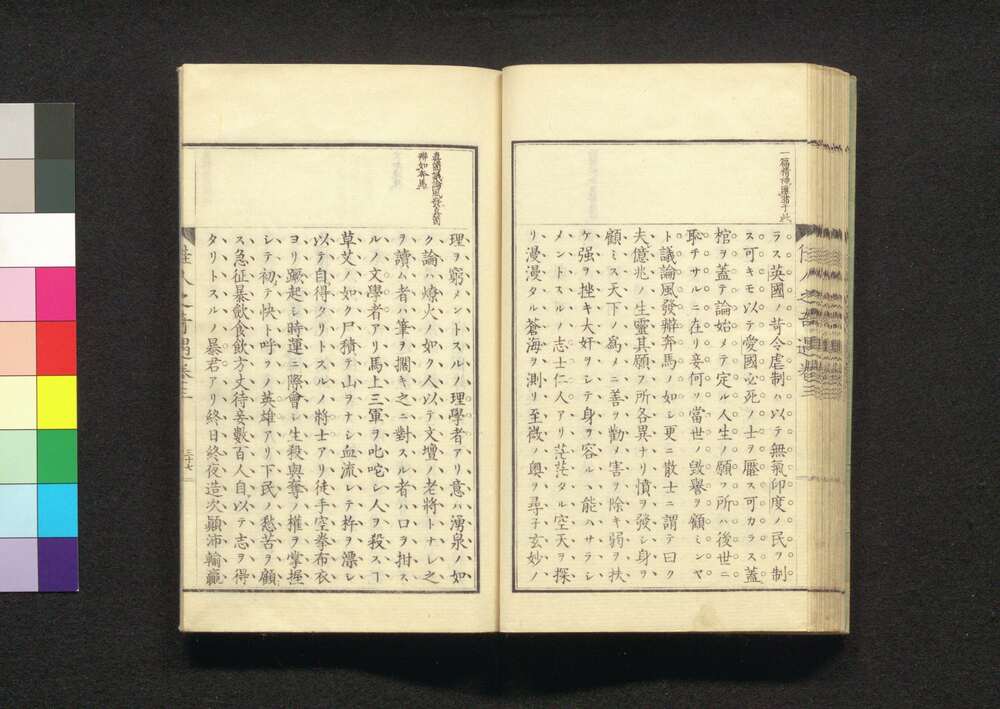 一篇精神進露于此
ラス英國ノ苛令虐制ハ以テ無氣印度ノ民ヲ制
ス可キモ以テ愛國必死ノ士ヲ壓ス可カラス蓋
棺ヲ蓋テ論始メテ定ル人生ノ願フ所ハ後世ニ
恥チサルニ在リ妾何ソ當世ノ毀譽ヲ顧ミンヤ
ト議論風發辯奔馬ノ如シ更ニ散士ニ謂テ曰ク
夫億兆ノ生靈其願フ所各異ナリ憤ヲ發シ身ヲ
顧ミス天下ノ爲メニ善ヲ勸メ害ヲ除キ弱ヲ扶
ケ强ヲ挫キ大奸ヲシテ身ヲ容ルヽ能ハサラシ
メントスルノ志士仁人アリ茫茫タル空天ヲ探
リ漫漫タル蒼海ヲ測リ至微ノ奧ヲ尋子玄妙ノ
辯如奔馬
理ヲ窮メントスルノ理學者アリ意ハ湧泉ノ如
ク論ハ燎火ノ如ク人以テ文壇ノ老將トナシ之
ヲ讀ム者ハ筆ヲ擱キ之ニ對スル者ハ口ヲ拑ス
ルノ文學者アリ馬上三軍ヲ叱咤シ人ヲ殺スヿ
草艾ノ如ク尸積テ山ヲナシ血流レテ杵ヲ漂シ
以テ自得タリトスルノ將士アリ徒手空拳布衣
ヨリ蹶起シ時運ニ際會シ生殺與奪ノ權ヲ掌握
シテ初テ快ト呼フノ英雄アリ下民ノ愁苦ヲ顧
ス急征暴斂食飲方丈待妾數百人自以テ志ヲ得
タリトスルノ暴君アリ終日終夜造次顚沛輸贏
佳人之奇遇卷三
三十七